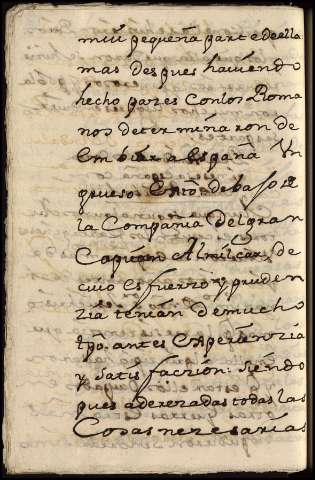 mui pequeña parte de ella
mas despues haviendo
hecho pazes con los Roma
nos determinaron de
embiar a españa vn
grueso exto debaxo de
la Compania del gran
Capitan Almilcar, de
cuio esfuerzo y pruden
zia tenian de mucho
tpo. antes experienzia
y satisfaczion: siendo
pues aderezadas todas las
Cosas nezesarias